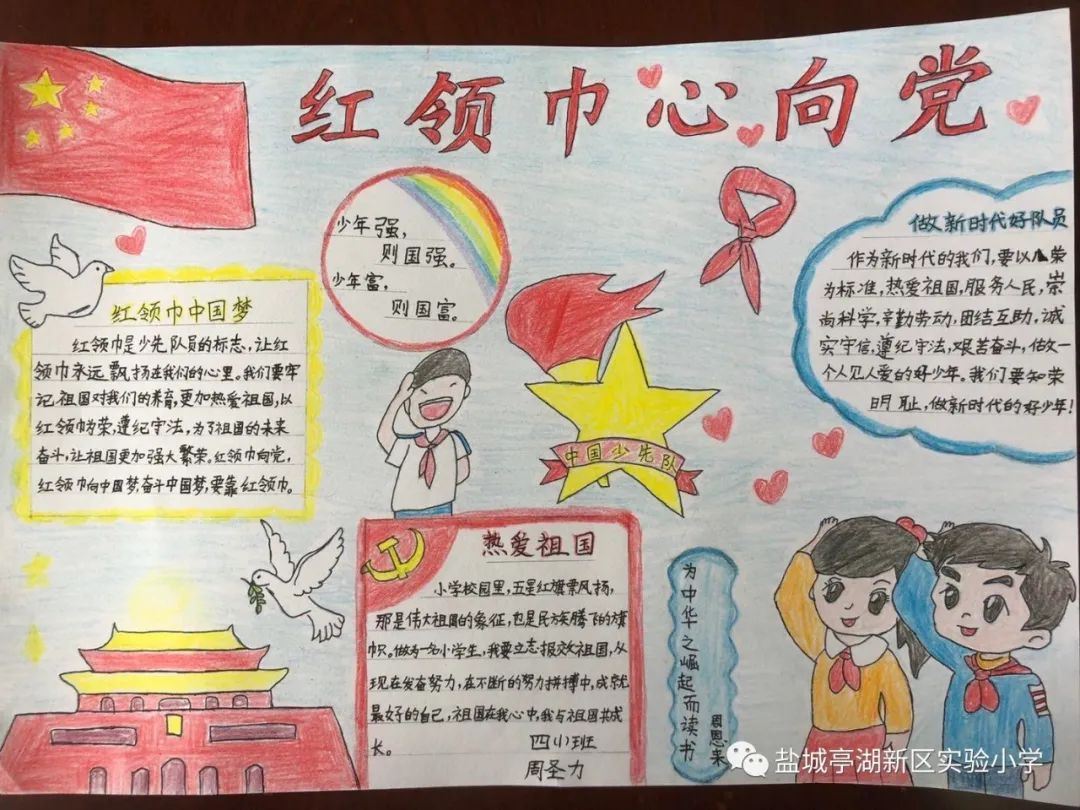 红领巾心向党
少年强，
则国强。
少年富，
则国富。
做新时代好队员
作为新时代的我们，要以八荣
为标准，热爱祖国，服务人民，崇
尚科学，辛勤劳动，团结互助，诚
实守信，遵纪守法，艰苦奋斗，做一
个人见人爱的好少年。我们要知荣
明耻，做新时代的好少年！
红领巾中国梦
红领巾是少先队员的标志，让红
领巾永远飘扬在我们的心里。我们要牢
记祖国对我们的养育，更加热爱祖国，以
红领巾为荣，遵纪守法，为了祖国的未来
奋斗，让祖国更加强大繁荣。红领巾向党，
红领巾向中国梦，奋斗中国梦，要靠红领巾。
中国少先队
热爱祖国
小学校园里，五星红旗飘扬，
那是伟大祖国的象征，也是民族腾飞的旗
帜。做为一名小学生，我要立志报效祖国，从
现在发奋努力，在不断的努力拼搏中，成就
最好的自己，祖国在我心中，我与祖国共成
长。
四（1）班
周圣力
为中华之崛起而读书
周恩来
盐城亭湖新区实验小学